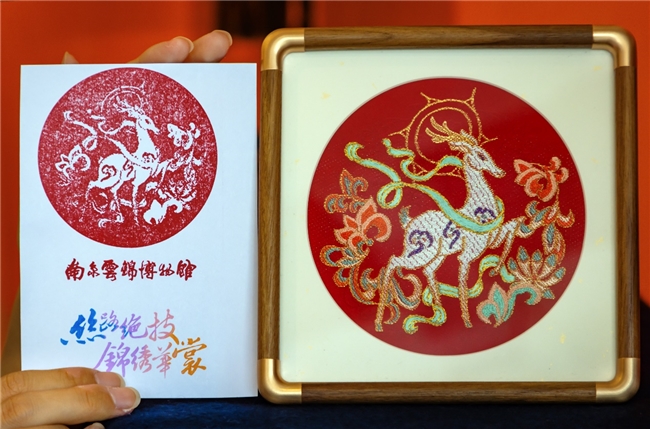 南京雲錦博物館
絲路绝技
錦绣華裳